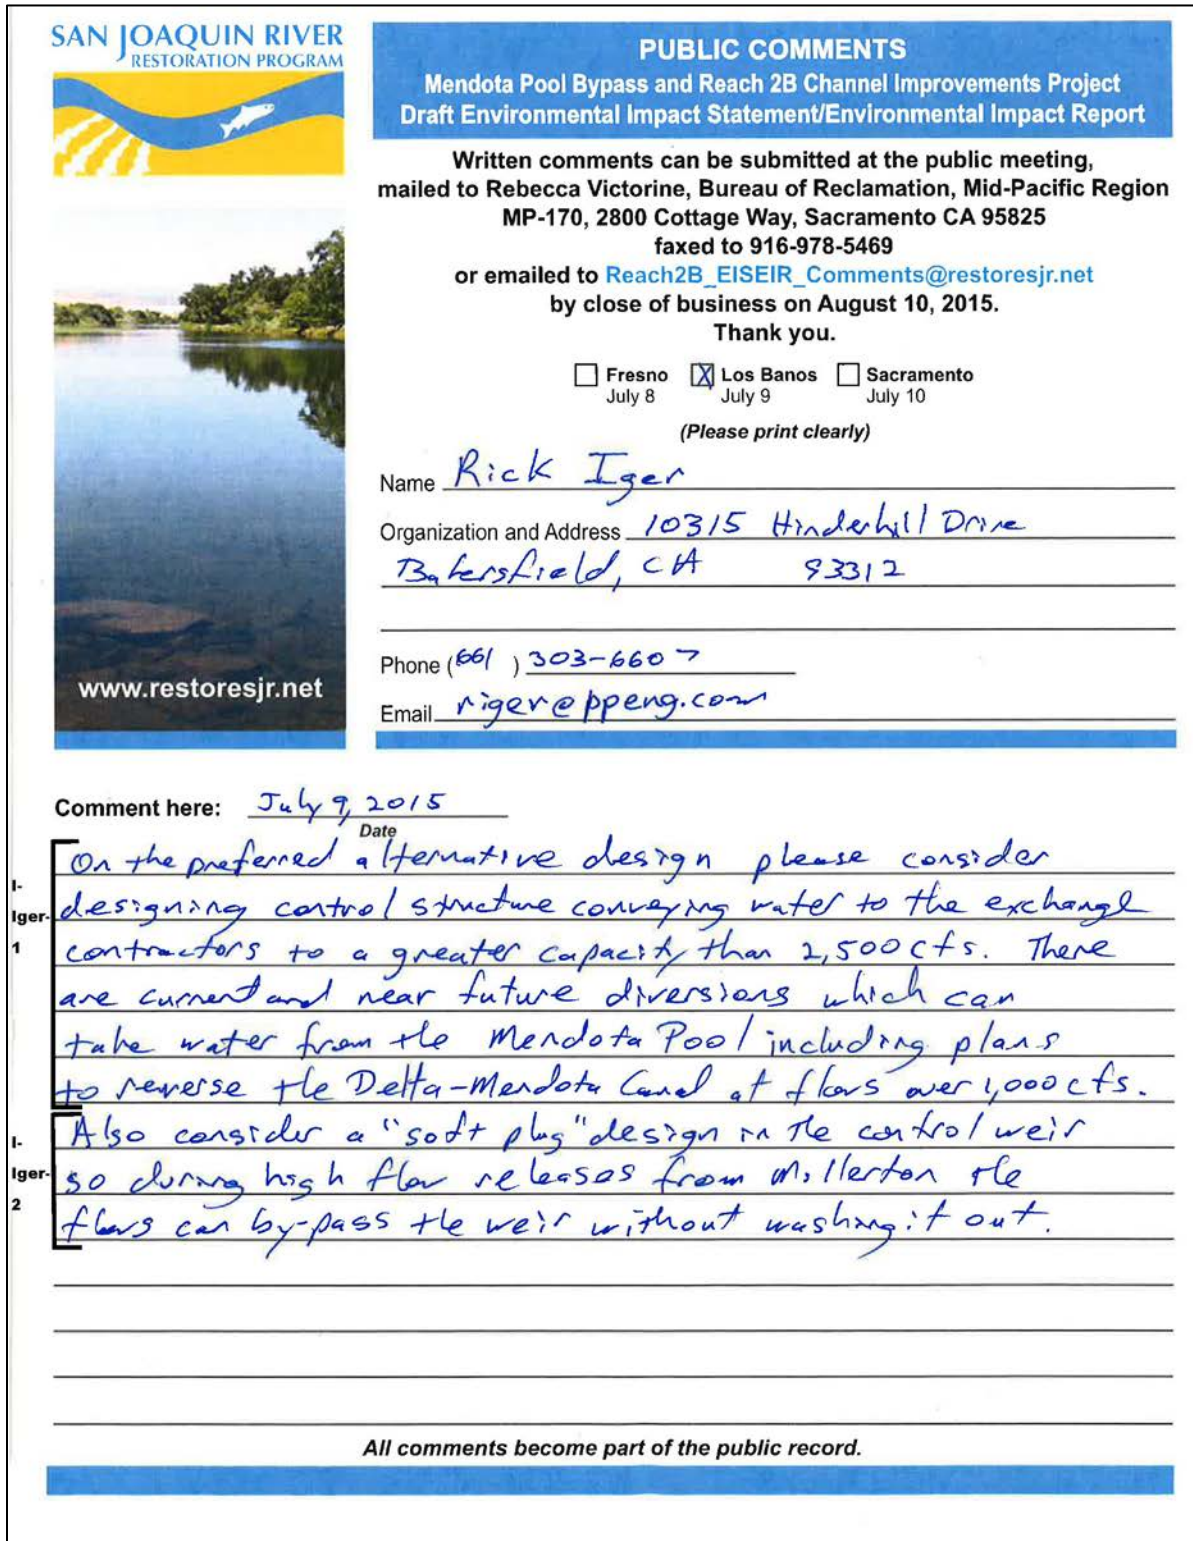 SAN JOAQUIN RIVER
RESTORATION PROGRAM
www.restoresjr.net
PUBLIC COMMENTS
Mendota Pool Bypass and Reach 2B Channel Improvements Project
Draft Environmental Impact Statement/Environmental Impact Report
Written comments can be submitted at the public meeting,
mailed to Rebecca Victorine, Bureau of Reclamation, Mid-Pacific Region
MP-170, 2800 Cottage Way, Sacramento CA 95825
faxed to 916-978-5469
or emailed to Reach2B_EISEIR_Comments@restoresjr.net
by close of business on August 10, 2015.
Thank you.
Fresno X Los Banos Sacramento
July 8 July 9 July 10
(Please print clearly)
Name Rick Iger
Organization and Address 10315 Hinderhill Drive
Bakersfield, CA 93312
Phone (661 ) 303-6607
Email riger@ppeng.com
Comment here: July 9, 2015
Date
On the preferred alternative design please consider
I-Iger-1
designing control structure conveying water to the exchange
contractors to a greater capacity than 2,500 cfs. There
are current and near future diversions which can
take water from the Mendota Pool including plans
to reverse the Delta-Mendota Canal at flows over 1,000 cfs.
I-Iger-2
Also consider a "soft plug" design in the control weir
so during high flow releases from Millerton the
flows can by-pass the weir without washing it out.
All comments become part of the public record.